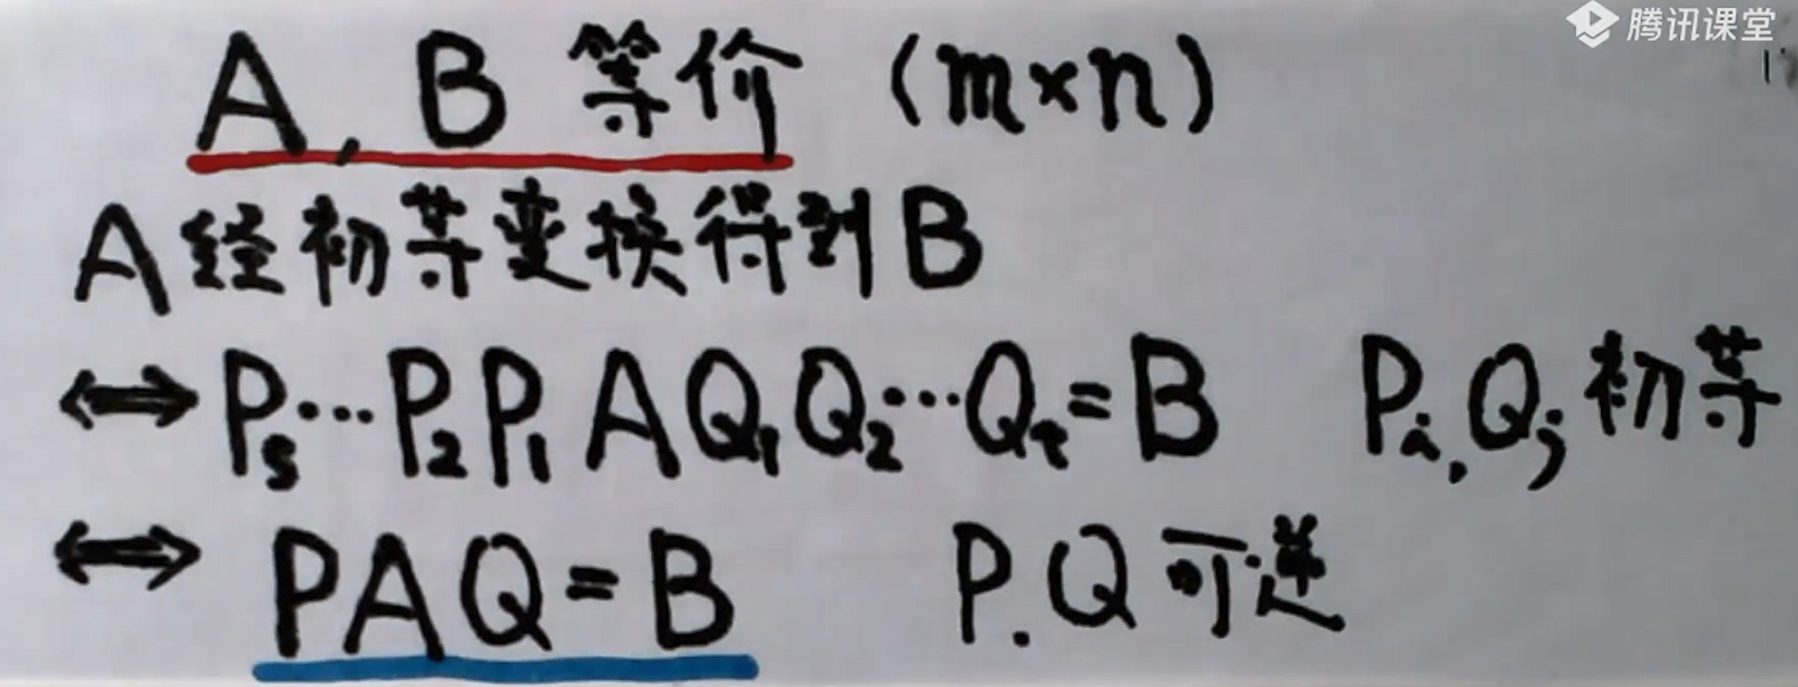 腾讯课堂
A, B 等价 (m×n)
A 经初等变换得到 B
⟺ Ps…P2P1AQ1Q2…Qt=B Pi,Qj初等
⟺ PAQ=B P.Q可逆